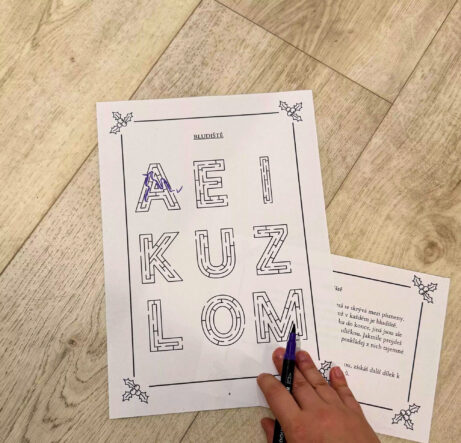 BLUDIŠTĚ
A E I
K U Z
L O M
se skrývá mezi písmeny.
v každém je bludiště.
do konce, jiná jsou ale
Jakmile projdeš
poskládej z nich tajemné
získáš další dílek k